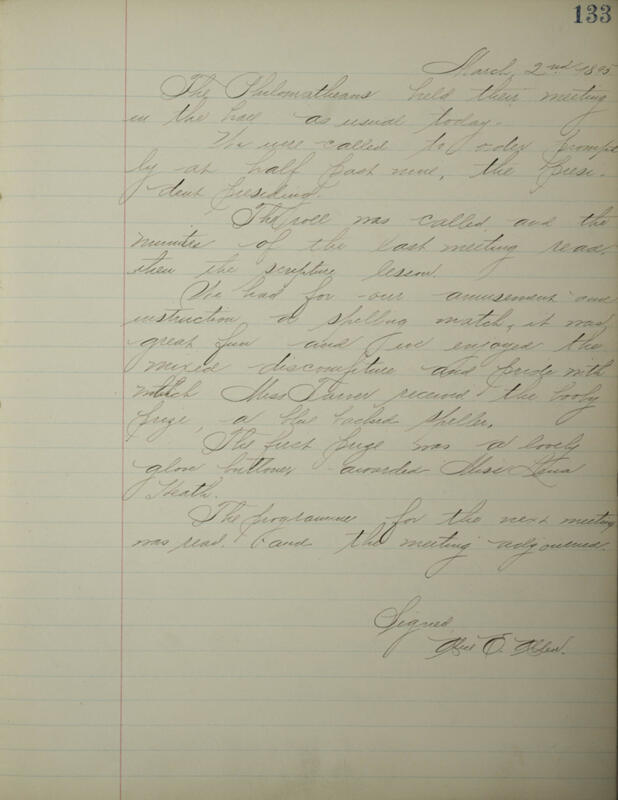 133
March, 2nd 1895
The Philomatheans held their meeting
in the hall as usual today.
We were called to order prompt
ly at half past nine, the Presi-
dent presiding.
The roll was called and the
minutes of the last meeting read,
then the scripture lesson.
We had for our amusement and
instruction a spelling match, it was
great fun and we enjoyed the
mixed discomfiture and pride with
which Miss Turner received the booby
prize, a blue backed speller.
The first prize was a lovely
glove buttoner awarded Miss Lena
Heath.
The programme for the next meeting
was read and the meeting adjourned.
Signed,
E.